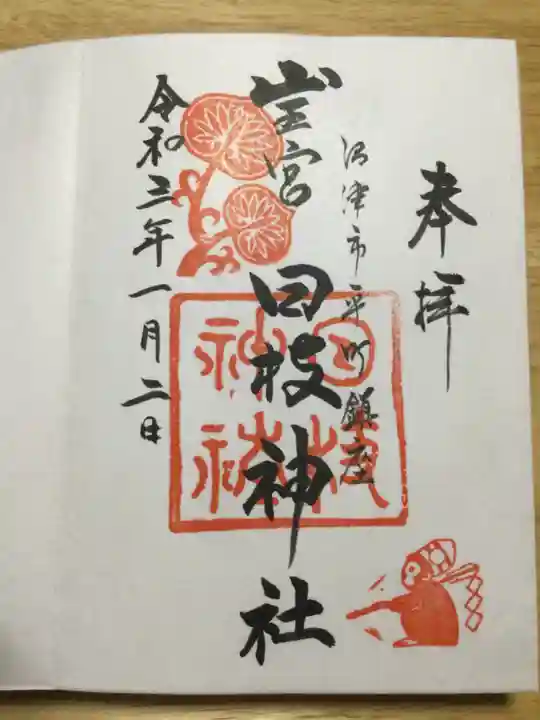 奉拝
沼津市平町鎮座
山王宮 日枝神社
日枝
神社
令和三年一月二日